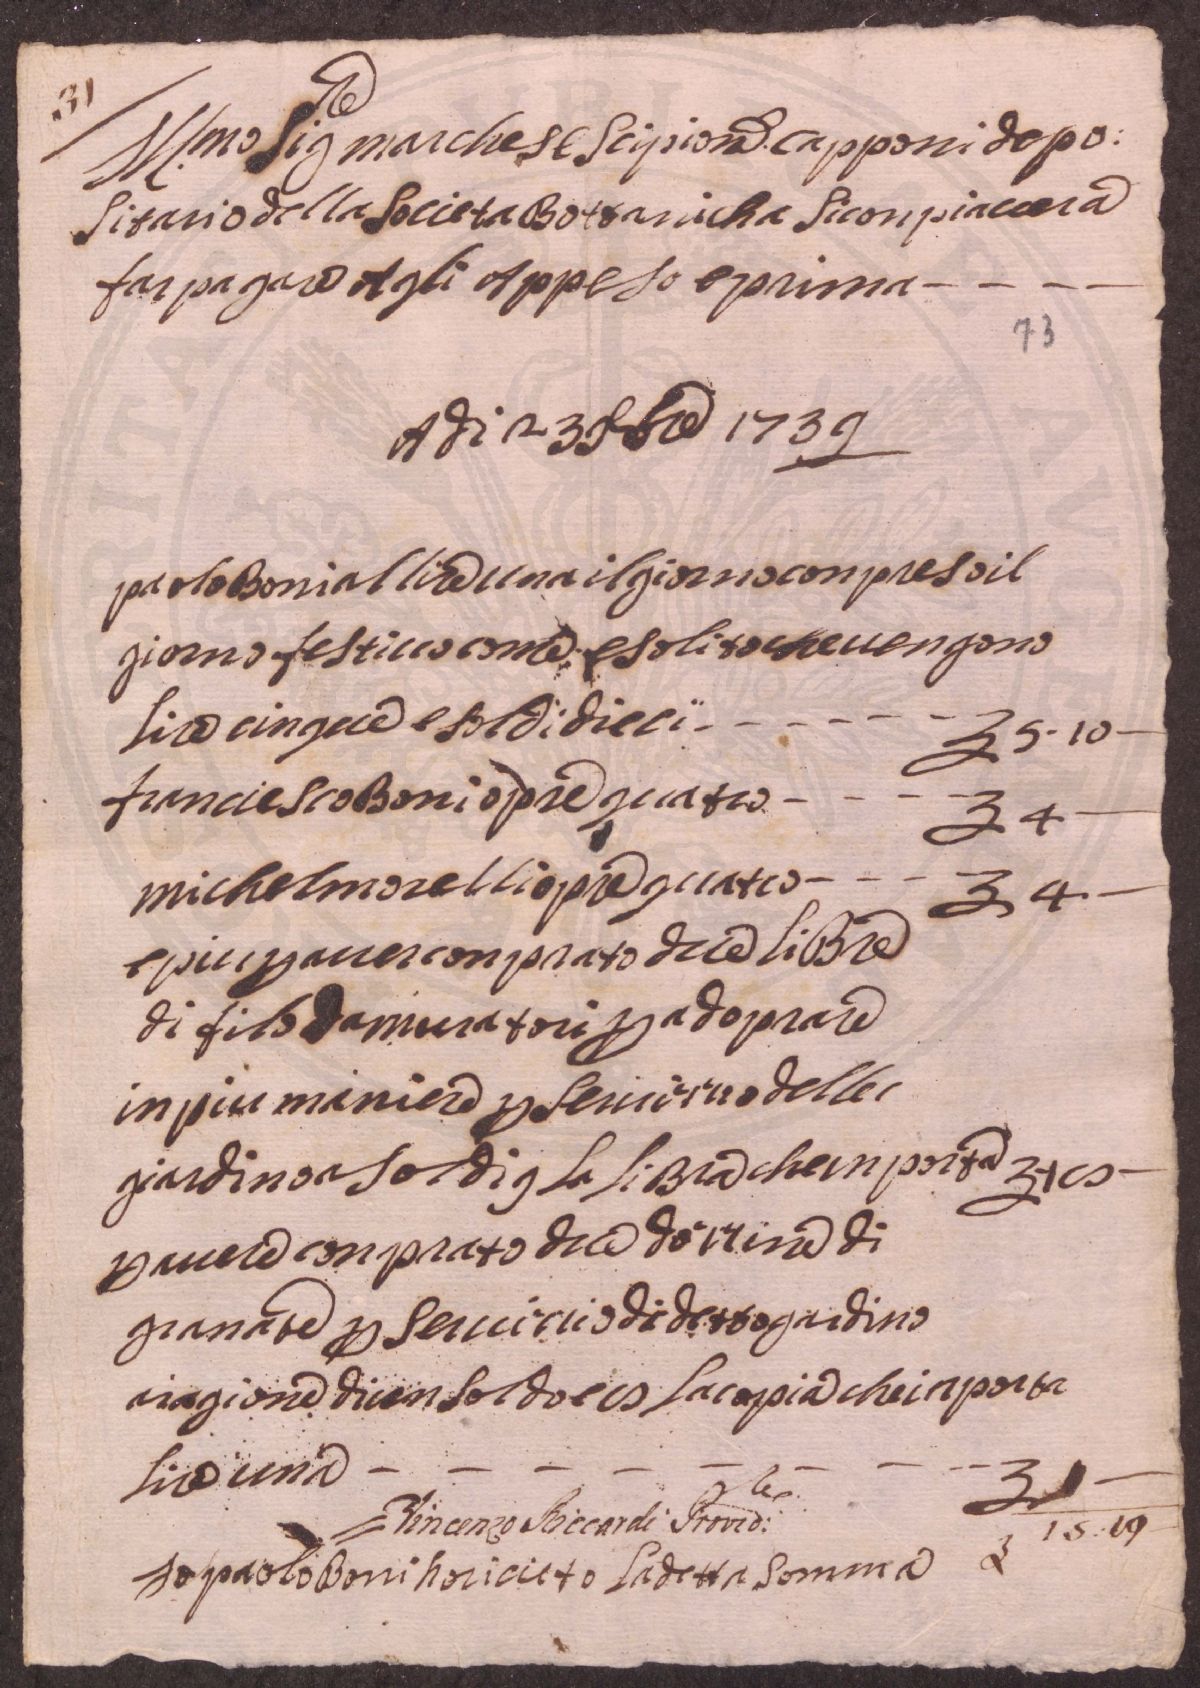 31
Ill.mo Sig.re marchese Scipione Capponi depo:
sitario della Societa Bottanicha Si conpiacera
far pagare Agli Appeso e prima
73
A di 23 9bre 1739
paolo Boni a llire una il giorno conpreso il
giorno festiuo come e solito che uengono
lire cinque e soldi dieci 5-10
franciesco Boni opre quatro 4
michel morelli opre quatro 4
e piu p auer conprato due libre
di filo da muratori p adoprare
in piu maniere p seruitio delle
giardino a soldi 9 la libra che inporta
p auere conprato due dozine di
granate p seruitio di detto gardino
a ragione di un soldo e 8 la copia che inporta
lire una 1
15.19
Vincenzo Riccardi Proved:re
Io paolo Boni ho riceuto la detta somma